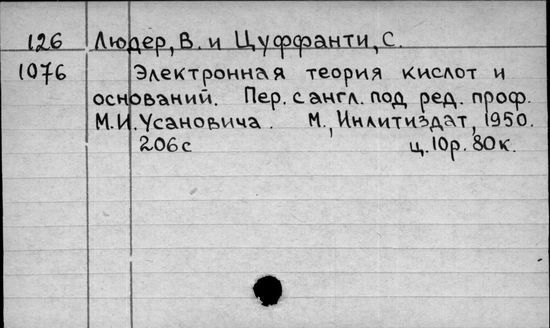 126 Людер, В. и Цуффанти, С.
1076 Электронная теория кислот и
оснований. Пер. с англ. под ред. проф.
М.И. Усановича. М., Инлитиздат, 1950.
206с ц. 10р. 80к.